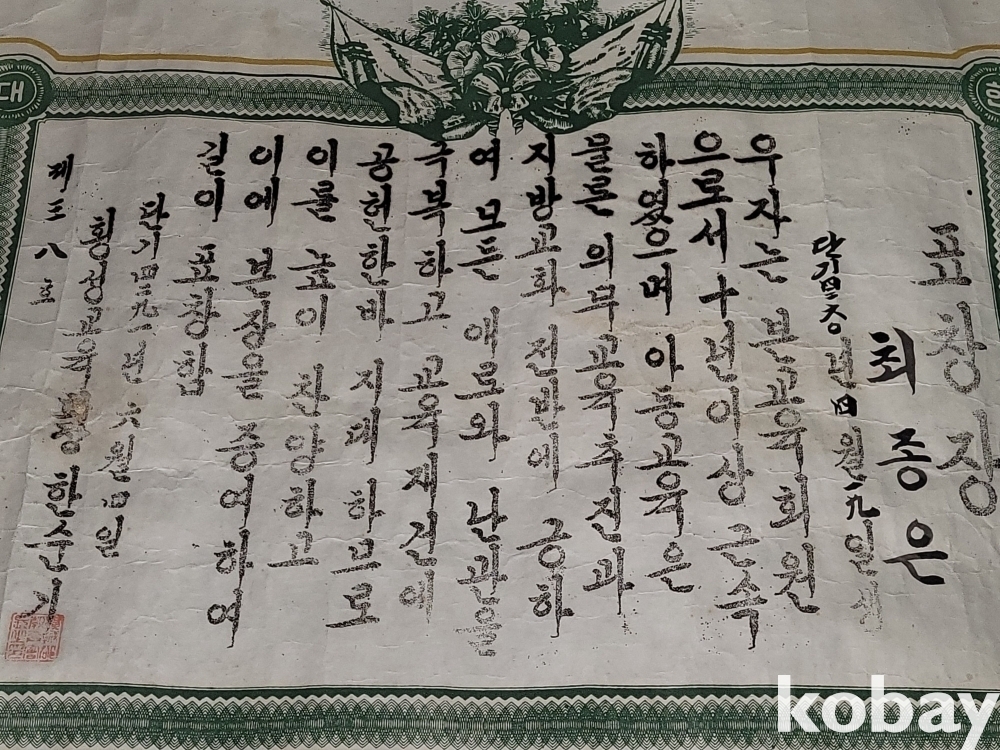 대
한
표창장
최종은
년 四월 一九일생
우자는 본교육회원
으로서 十년이상 근속
하였으며 아동교육은
물론 의무교육추진과
지방교화 전반에 긍하
여 모든 애로와 난관을
극복하고 교육재건에
공헌한바 지대 하므로
이를 높이 찬양하고
이에 본장을 증여하여
길이 표창함
단기四二九一년 六월 四일
횡성교육 한순기
제 八 호
kobay